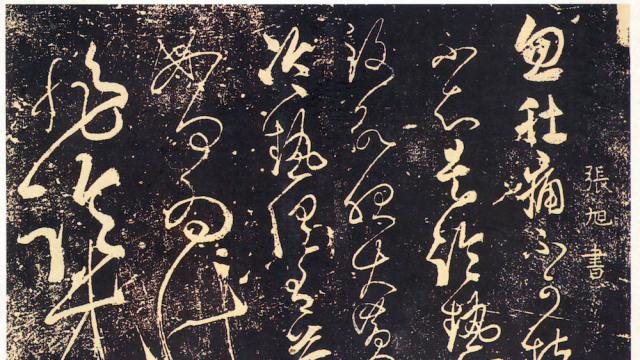 張旭書
忽肚痛不可堪
不知是冷熱
致欲服大黃
冷熱俱有益
如何為計
非臨床